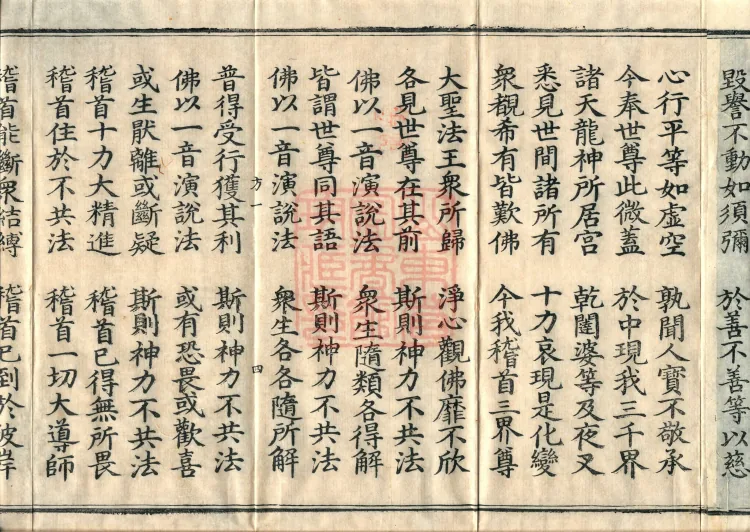 毀譽不動如須彌 於善不善等以慈
心行平等如虛空 孰聞人寶不敬承
今奉世尊此微蓋 於中現我三千界
諸天龍神所居宮 乾闥婆等及夜叉
悉見世間諸所有 十力哀現是化變
衆覩希有皆歎佛 今我稽首三界尊
大聖法王衆所歸 淨心觀佛靡不欣
各見世尊在其前 斯則神力不共法
佛以一音演說法 衆生隨類各得解
皆謂世尊同其語 斯則神力不共法
佛以一音演說法 衆生各各隨所解
方一 四
普得受行獲其利 斯則神力不共法
佛以一音演說法 或有恐畏或歡喜
或生厭離或斷疑 斯則神力不共法
稽首十力大精進 稽首已得無所畏
稽首住於不共法 稽首一切大導師
稽首能斷衆結縛 稽首已到於彼岸